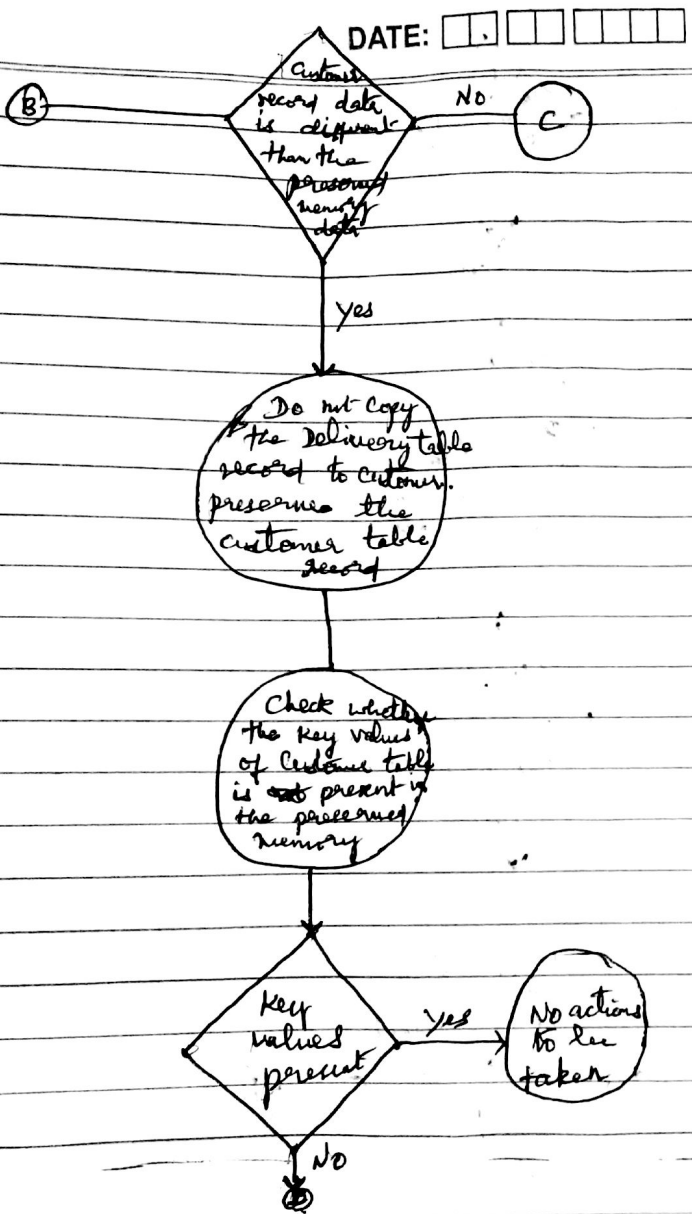 DATE:
B
Customer
record data
is different
than the
preserved
memory
data
No
C
Yes
Do not Copy
the Delivery table
record to customer.
preserve the
customer table
record
Check whether
the key values
of Customer table
is present in
the preserved
memory
Key
values
present
Yes
No actions
to be
taken
NO